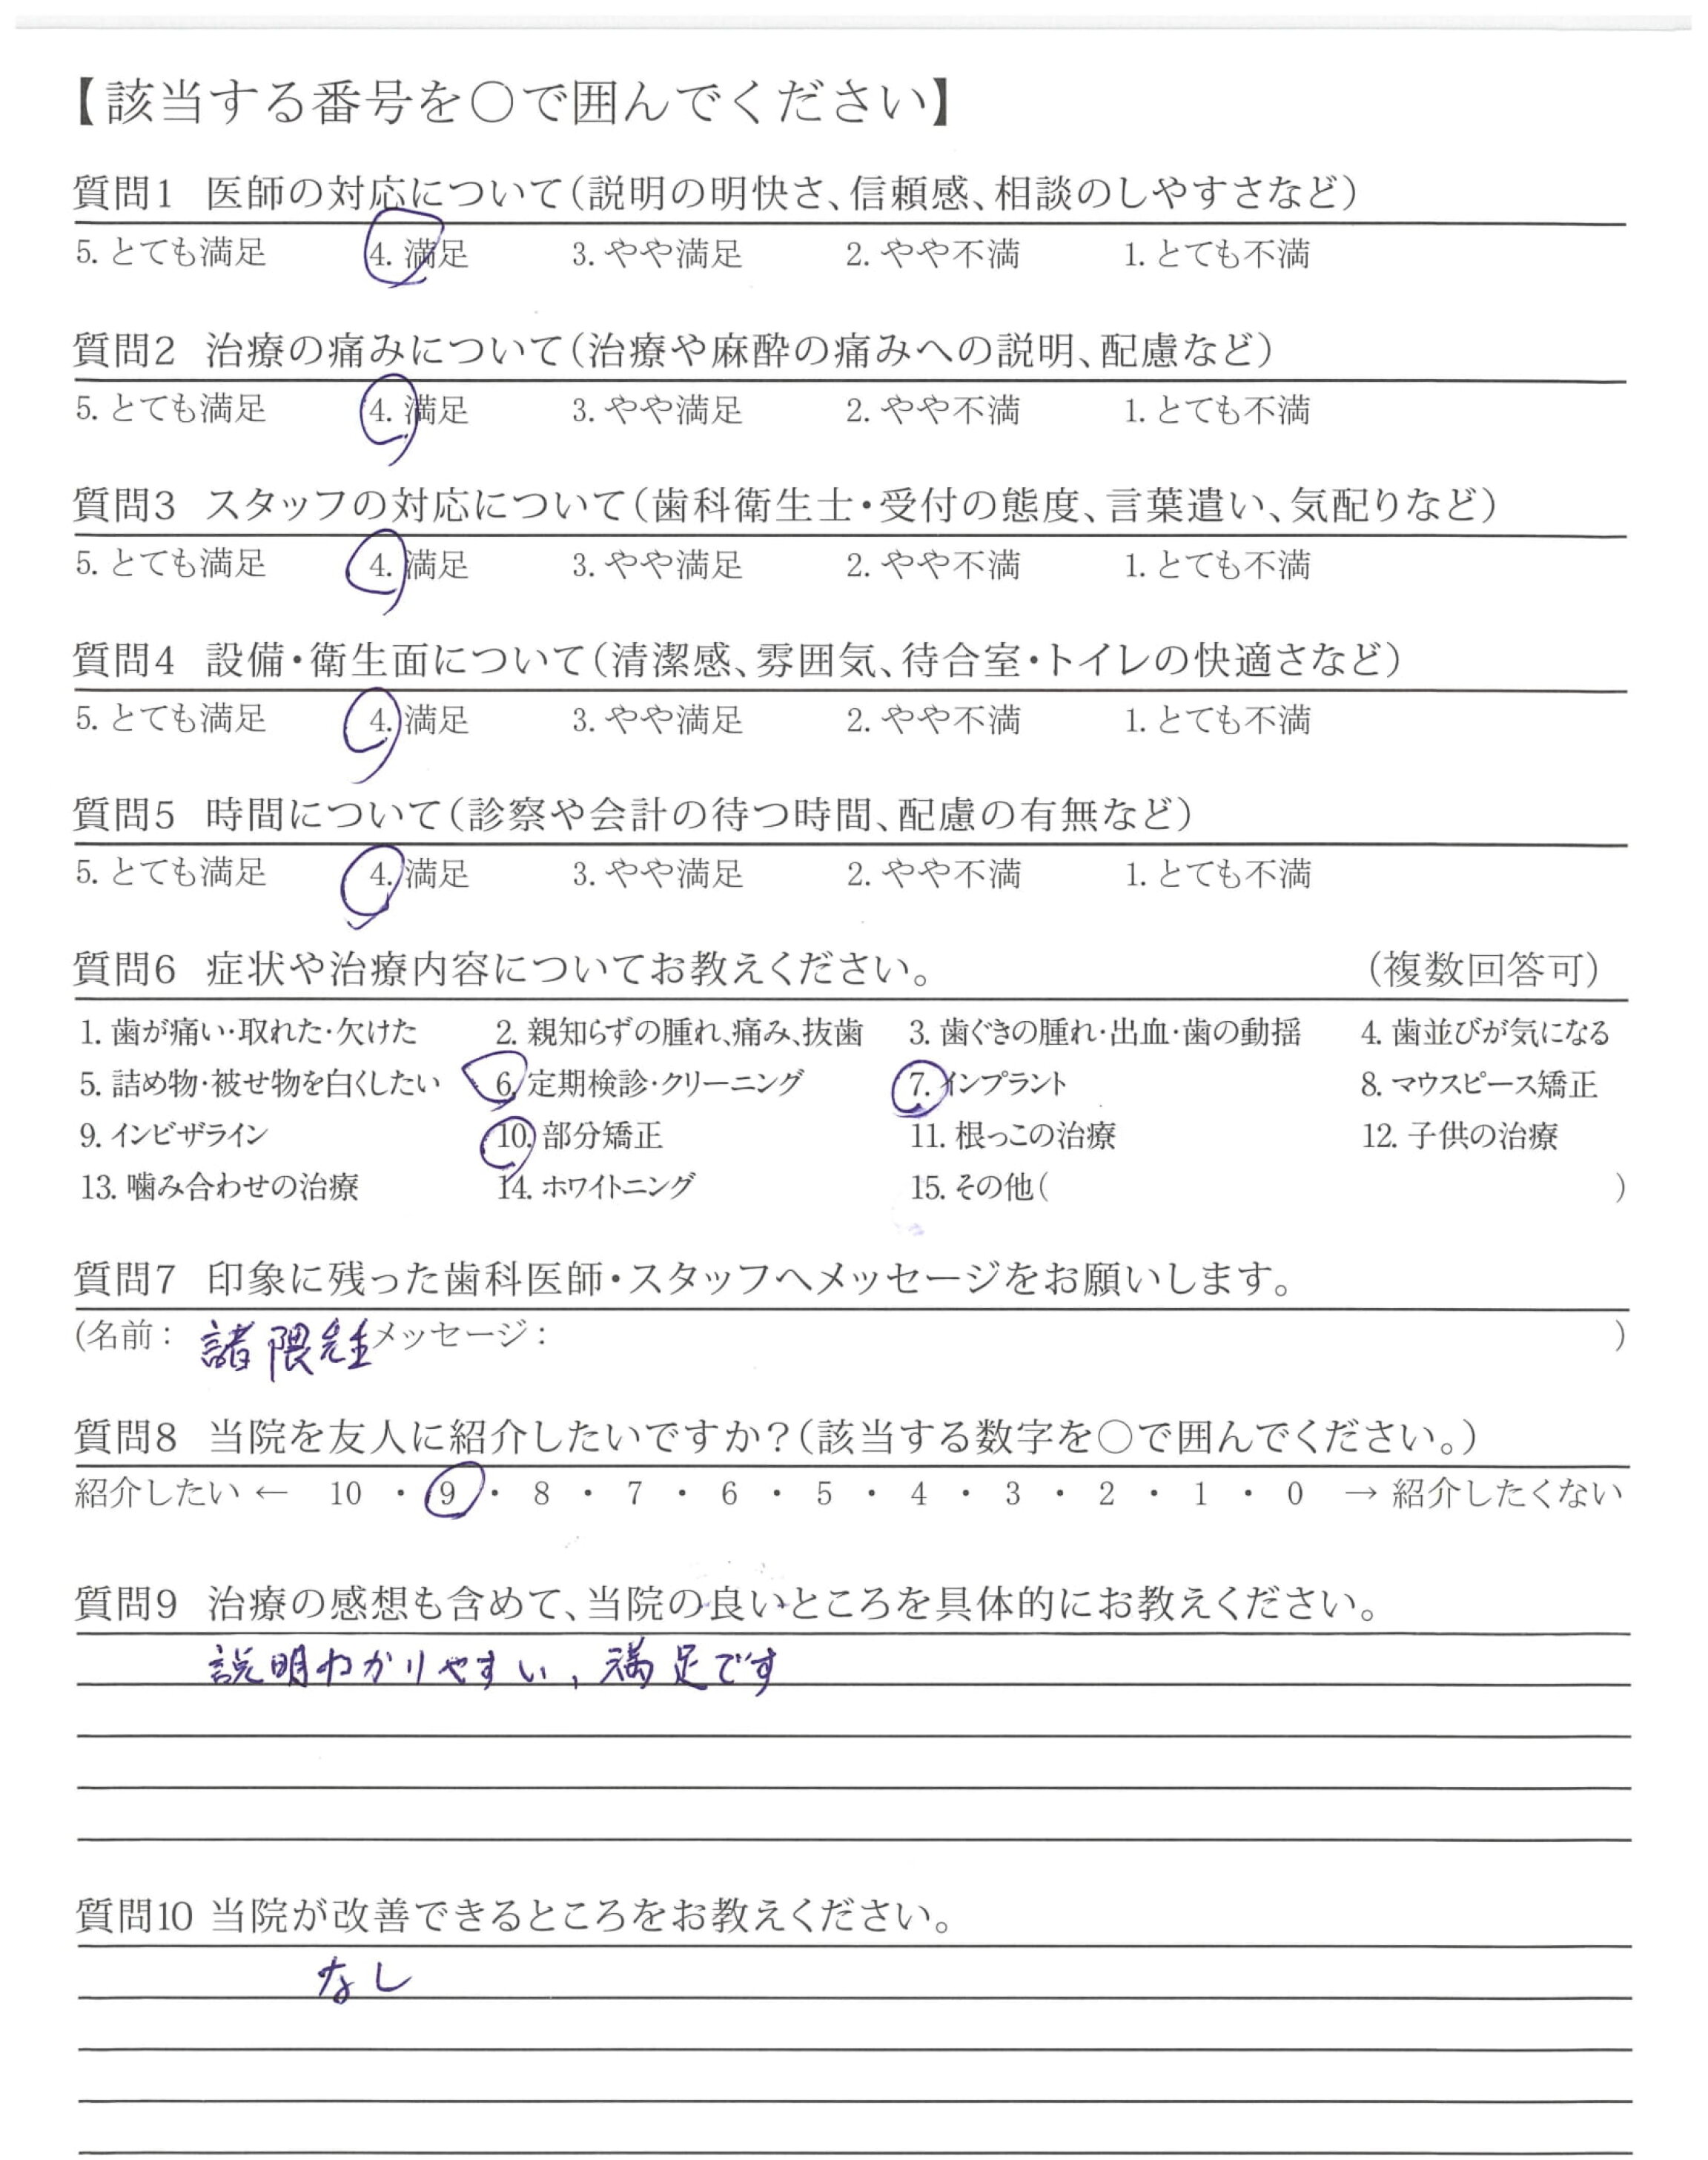 【該当する番号を○で囲んでください】
質問1 医師の対応について(説明の明快さ、信頼感、相談のしやすさなど)
5. とても満足 4. 満足 3. やや満足 2. やや不満 1. とても不満
質問2 治療の痛みについて(治療や麻酔の痛みへの説明、配慮など)
5. とても満足 4. 満足 3. やや満足 2. やや不満 1. とても不満
質問3 スタッフの対応について(歯科衛生士・受付の態度、言葉遣い、気配りなど)
5. とても満足 4. 満足 3. やや満足 2. やや不満 1. とても不満
質問4 設備・衛生面について(清潔感、雰囲気、待合室・トイレの快適さなど)
5. とても満足 4. 満足 3. やや満足 2. やや不満 1. とても不満
質問5 時間について(診察や会計の待つ時間、配慮の有無など)
5. とても満足 4. 満足 3. やや満足 2. やや不満 1. とても不満
質問6 症状や治療内容についてお教えください。 (複数回答可)
1. 歯が痛い・取れた・欠けた 2. 親知らずの腫れ、痛み、抜歯 3. 歯ぐきの腫れ・出血・歯の動揺 4. 歯並びが気になる
5. 詰め物・被せ物を白くしたい 6. 定期検診・クリーニング 7. インプラント 8. マウスピース矯正
9. インビザライン 10. 部分矯正 11. 根っこの治療 12. 子供の治療
13. 噛み合わせの治療 14. ホワイトニング 15. その他( )
質問7 印象に残った歯科医師・スタッフへメッセージをお願いします。
(名前: 諸隈先生 メッセージ: )
質問8 当院を友人に紹介したいですか?(該当する数字を○で囲んでください。)
紹介したい ← 10 ・ 9 ・ 8 ・ 7 ・ 6 ・ 5 ・ 4 ・ 3 ・ 2 ・ 1 ・ 0 → 紹介したくない
質問9 治療の感想も含めて、当院の良いところを具体的にお教えください。
説明わかりやすい、満足です
質問10 当院が改善できるところをお教えください。
なし